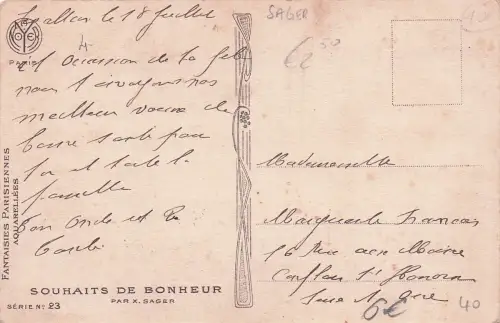 le 18 Juillet
PARIS
A l'occasion de la fete
nous t'envoyons nos
meilleurs voeux de
bonne sante pour
toi et toute la
famille
Ton Oncle et ta
Tante
FANTAISIES PARISIENNES
AQUARELLÉES
SOUHAITS DE BONHEUR
PAR X. SAGER
SÉRIE No 23
SAGER
Mademoiselle
Marguerite Francois
16 Rue
Conflans Ste Honorine
Seine
6€
40